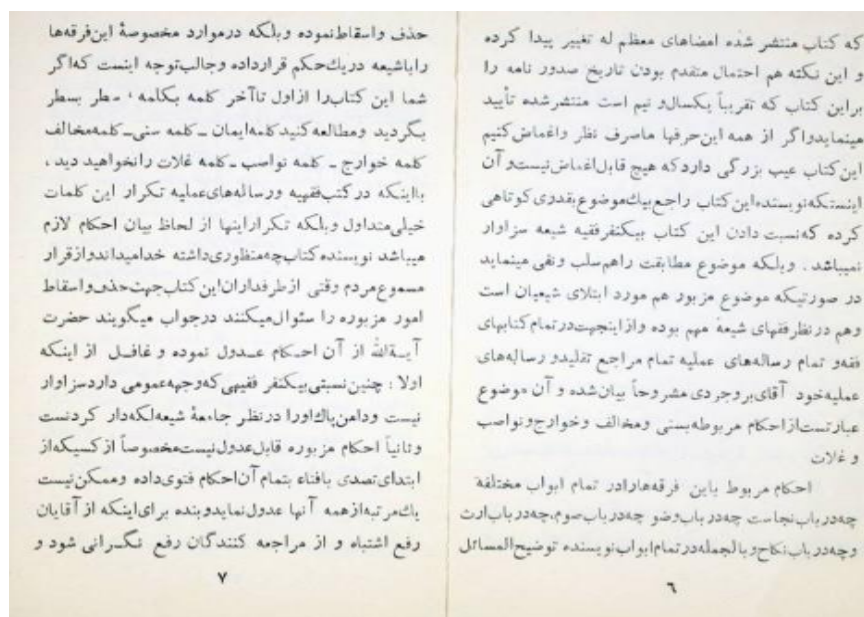 که کتاب منتشر شده امضاهای معظم له تغییر پیدا کرده
و این نکته هم احتمال متقدم بودن تاریخ صدور نامه را
براین کتاب که تقریباً یکسال و نیم است منتشر شده تأیید
مینماید واگر از همه این حرفها ماصرف نظر واغماض کنیم
این کتاب عیب بزرگی دارد که هیچ قابل اغماض نیست و آن
اینستکه نویسنده این کتاب راجع بیك موضوع بقدری کوتاهی
کرده که نسبت دادن این کتاب بیکنفر فقیه شیعه سزاوار
نمیباشد . وبلکه موضوع مطابقت راهم سلب ونفی مینماید
در صورتیکه موضوع مزبور هم مورد ابتلای شیعیان است
وهم در نظر فقهای شیعهٔ مهم بوده وازاینجهت در تمام کتابهای
فقه و تمام رساله‌های عملیه تمام مراجع تقلید و رساله‌های
عملیه خود آقای بروجردی مشروحاً بیان شده و آن موضوع
عبارتست از احکام مربوطه بسنی ومخالف وخوارج ونواصب
و غلات
احکام مربوط باین فرقه‌هارا در تمام ابواب مختلفهٔ
چه در باب نجاست چه در باب وضو چه در باب صوم، چه در باب ارث
وچه در باب نکاح و بالجمله در تمام ابواب نویسنده توضیح المسائل
٦
حذف واسقاط نموده وبلکه در موارد مخصوصهٔ این فرقه‌ها
راباشیعه در یك حکم قرار داده وجالب توجه اینست که اگر
شما این کتاب را از اول تا آخر کلمه بکلمه ، سطر بسطر
بگردید ومطالعه کنید کلمه ایمان ـ کلمه سنی ـ کلمه مخالف
کلمه خوارج ـ کلمه نواصب ـ کلمه غلات رانخواهید دید ،
بااینکه در کتب فقهیه ورساله‌های عملیه تکرار این کلمات
خیلی متداول وبلکه تکرار اینها از لحاظ بیان احکام لازم
میباشد نویسنده کتاب چه منظوری داشته خدا میداند واز قرار
مسموع مردم وقتی از طرفداران این کتاب جهت حذف واسقاط
امور مزبوره را سئوال میکنند در جواب میگویند حضرت
آیة‌الله از آن احکام عدول نموده و غافل از اینکه
اولا : چنین نسبتی بیکنفر فقیهی که وجهه عمومی دارد سزاوار
نیست ودامن پاك اورا در نظر جامعهٔ شیعه لکه‌دار کردنست
وثانیاً احکام مزبوره قابل عدول نیست مخصوصاً از کسیکه از
ابتدای تصدی بافتاء بتمام آن احکام فتوی داده وممکن نیست
یك مرتبه از همه آنها عدول نماید و بنده برای اینکه از آقایان
رفع اشتباه و از مراجعه کنندگان رفع نگرانی شود و
٧